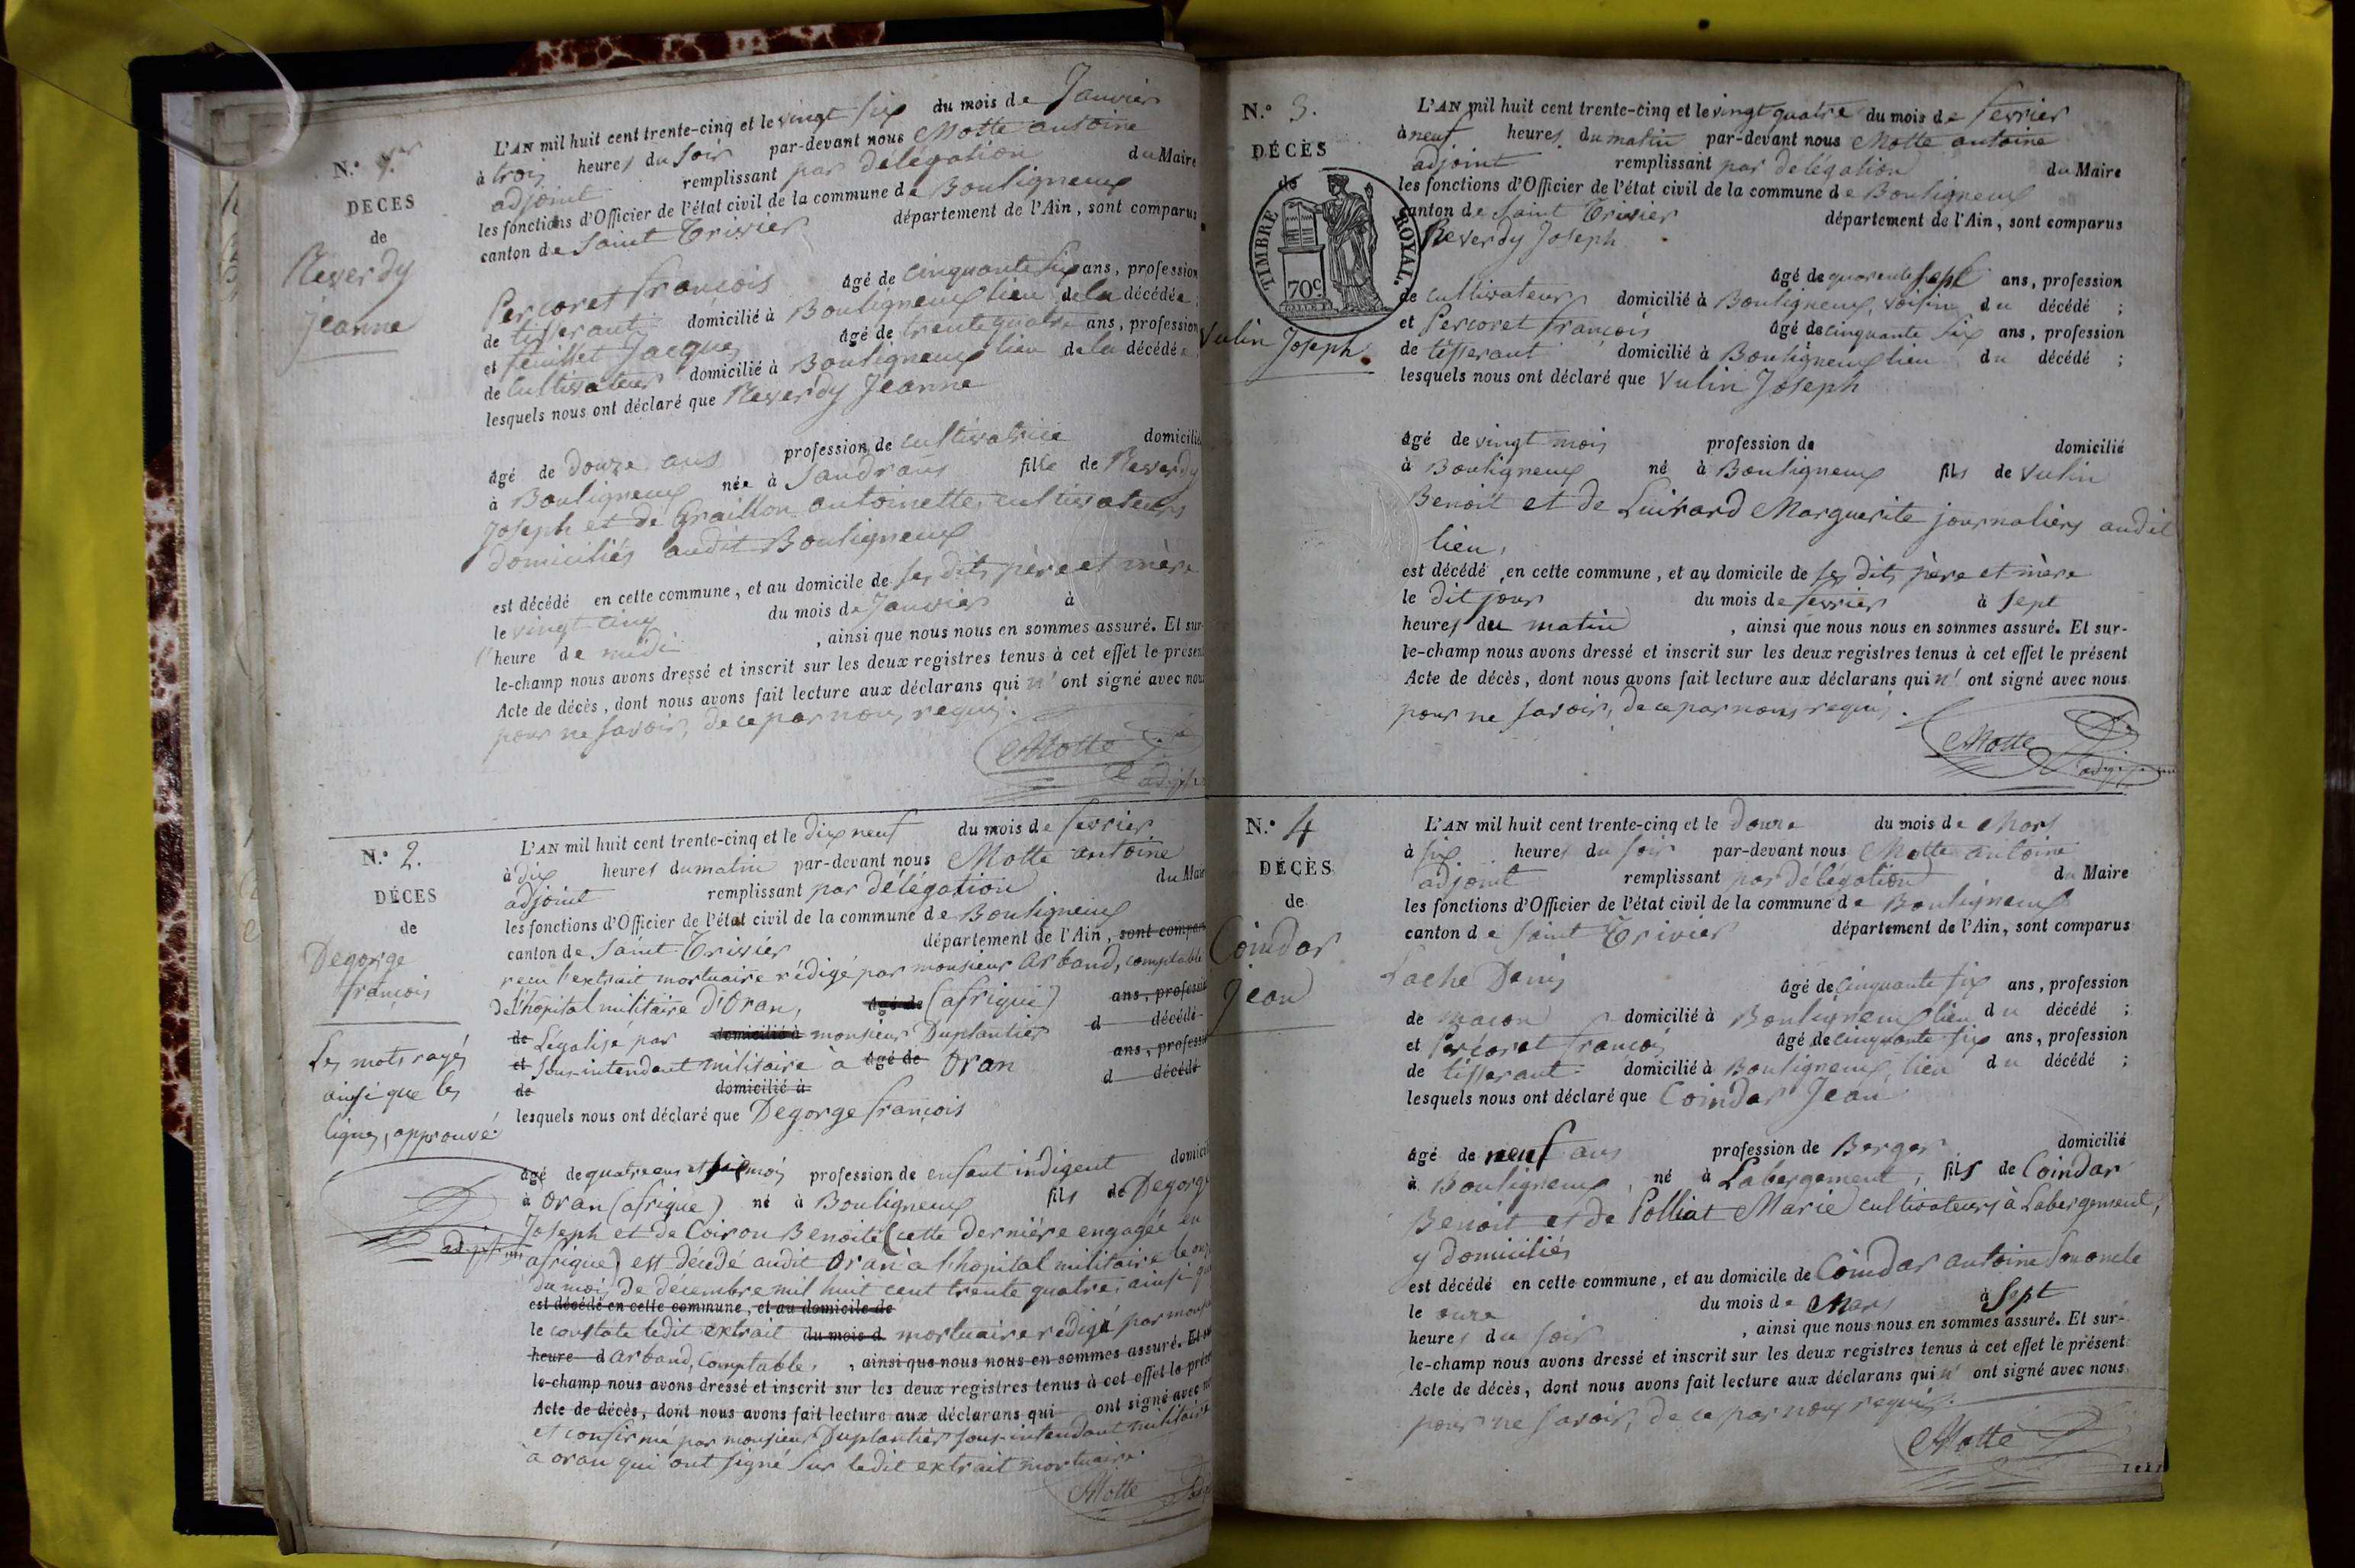 N.º 1.er
DÉCES
de
Reverdy
Jeanne
L'AN mil huit cent trente-cinq et le vingt six du mois de Janvier
à trois heures du soir par-devant nous Motte antoine
adjoint remplissant par délégation du Maire
les fonctions d'Officier de l'état civil de la commune de Bouligneux
canton de Saint Trivier département de l'Ain, sont comparus
Percoret françois âgé de cinquante six ans, profession
de tisserant domicilié à Bouligneux lieu de la décédée ;
et feuillet Jacques âgé de trente quatre ans, profession
de Cultivateur domicilié à Bouligneux lieu de la décédée
lesquels nous ont déclaré que Reverdy Jeanne
âgé de douze ans profession de cultivatrice domicilié
à Bouligneux née à Sandrans fille de Reverdy
Joseph et de Graillon antoinette, cultivateurs
domiciliés audit Bouligneux
est décédé en cette commune, et au domicile de ses dits père et mère
le vingt cinq du mois de Janvier à
l'heure de midi , ainsi que nous nous en sommes assuré. Et sur-
le-champ nous avons dressé et inscrit sur les deux registres tenus à cet effet le présent
Acte de décès, dont nous avons fait lecture aux déclarans qui n' ont signé avec nous
pour ne savoir, de ce par nous requis.
Motte
adjoint
N.º 2.
DÉCES
de
Degorge
françois
Les mots rayés
ainsi que les
lignes, approuvé.
L'AN mil huit cent trente-cinq et le dix neuf du mois de fevrier
à dix heures du matin par-devant nous Motte antoine
adjoint remplissant par délégation du Maire
les fonctions d'Officier de l'état civil de la commune de Bouligneux
canton de Saint Trivier département de l'Ain, sont comparus
reçu l'extrait mortuaire rédigé par monsieur Arband, comptable
de l'hopital militaire d'Oran, âgé de (afrique) ans, profession
de Légalisé par domicilié à monsieur Duplantier d décédé
et sous-intendant militaire à âgé de Oran ans, profession
de domicilié à d décédé
lesquels nous ont déclaré que Degorge françois
âgé de quatre ans et six mois profession de enfant indigent domicilié
à Oran (afrique) né à Bouligneux fils de Degorge
Joseph et de Coiron Benoite (cette dernière engagée en
afrique) est décédé audit Oran à l'hopital militaire le onze
du mois de décembre mil huit cent trente quatre, ainsi que
est décédé en cette commune, et au domicile de
le constate ledit extrait du mois d mortuaire rédigé par monsieur
heure d Arband, Comptable, , ainsi que nous nous en sommes assuré. Et sur-
le-champ nous avons dressé et inscrit sur les deux registres tenus à cet effet le présent
Acte de décès, dont nous avons fait lecture aux déclarans qui ont signé avec nous
et confirmé par monsieur Duplantier sous-intendant militaire
à oran qui ont signé sur ledit extrait mortuaire.
Motte
N.º 3.
DÉCÈS
de
TIMBRE ROYAL.
70c.
Vulin
Joseph
L'AN mil huit cent trente-cinq et le vingt quatre du mois de fevrier
à neuf heures du matin par-devant nous Motte antoine
adjoint remplissant par délégation du Maire
les fonctions d'Officier de l'état civil de la commune de Bouligneux
canton de Saint Trivier département de l'Ain, sont comparus
Reverdy Joseph
âgé de quarente sept ans, profession
de cultivateur domicilié à Bouligneux, voisin du décédé ;
et Percoret françois âgé de cinquante six ans, profession
de tisserant domicilié à Bouligneux lieu du décédé ;
lesquels nous ont déclaré que Vulin Joseph
âgé de vingt mois profession de domicilié
à Bouligneux né à Bouligneux fils de Vulin
Benoit et de Luivard Marguerite journaliers audit
lieu,
est décédé en cette commune, et au domicile de ses dits père et mère
le dit jour du mois de fevrier à sept
heures du matin , ainsi que nous nous en sommes assuré. Et sur-
le-champ nous avons dressé et inscrit sur les deux registres tenus à cet effet le présent
Acte de décès, dont nous avons fait lecture aux déclarans qui n' ont signé avec nous
pour ne savoir, de ce par nous requis.
Motte
adjoint
N.º 4
DÉCÈS
de
Coindar
Jean
L'AN mil huit cent trente-cinq et le douze du mois de Mars
à six heures du soir par-devant nous Motte antoine
adjoint remplissant par délégation du Maire
les fonctions d'Officier de l'état civil de la commune de Bouligneux
canton de Saint Trivier département de l'Ain, sont comparus
Lache Denis âgé de cinquante six ans, profession
de maçon domicilié à Bouligneux lieu du décédé ;
et Percoret françois âgé de cinquante six ans, profession
de tisserant domicilié à Bouligneux, lieu du décédé ;
lesquels nous ont déclaré que Coindar Jean
âgé de neuf ans profession de Berger domicilié
à Bouligneux, né à Labergement, fils de Coindar
Benoit et de Polliat Marie cultivateurs à Labergement,
y domiciliés
est décédé en cette commune, et au domicile de Coindar antoine son oncle
le onze du mois de Mars à sept
heures du soir , ainsi que nous nous en sommes assuré. Et sur-
le-champ nous avons dressé et inscrit sur les deux registres tenus à cet effet le présent
Acte de décès, dont nous avons fait lecture aux déclarans qui n' ont signé avec nous
pour ne savoir, de ce par nous requis.
Motte